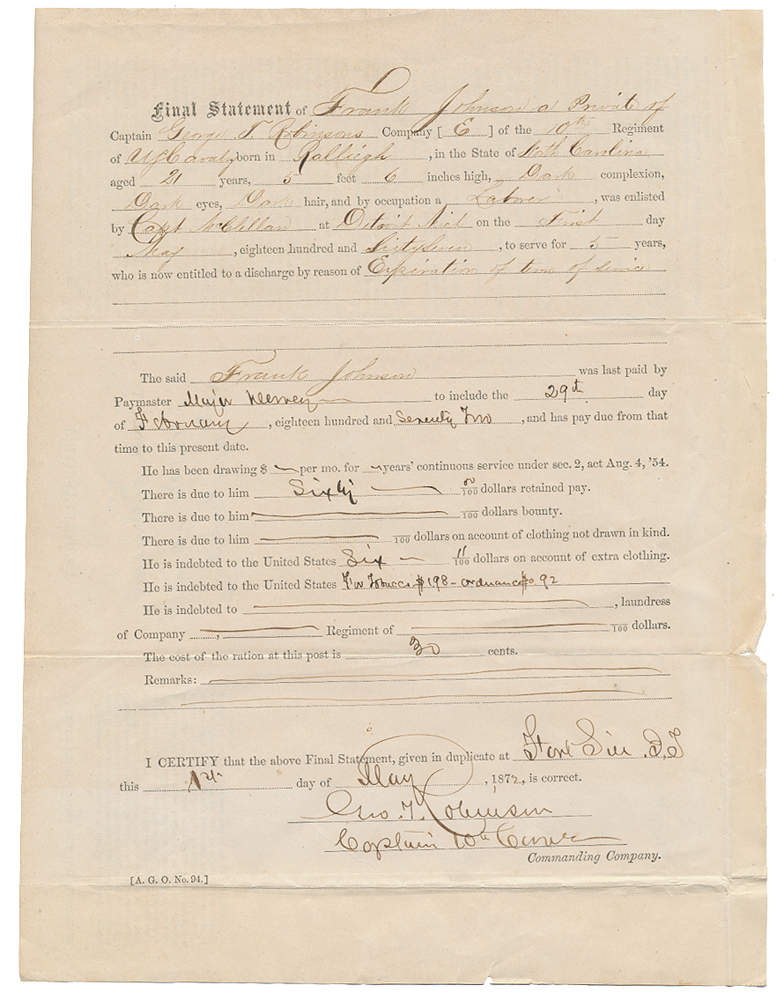 Final Statement of Frank Johnson a Private of
Captain George T. Robinsons Company [ E ] of the 10th Regiment
of US Cavalry born in Ralliegh, in the State of North Carolina
aged 21 years, 5 feet 6 inches high, Dark complexion,
Dark eyes, Dark hair, and by occupation a Laborer, was enlisted
by Capt McClellan at Detroit Mich on the First day
May, eighteen hundred and Sixty Seven, to serve for 5 years,
who is now entitled to a discharge by reason of Expiration of time of service
The said Frank Johnson was last paid by
Paymaster Major to include the 29th day
of February, eighteen hundred and Seventy Two, and has pay due from that
time to this present date.
He has been drawing $ — per mo. for — years' continuous service under sec. 2, act Aug. 4, '54.
There is due to him Sixty — /100 dollars retained pay.
There is due to him — /100 dollars bounty.
There is due to him — /100 dollars on account of clothing not drawn in kind.
He is indebted to the United States Six — 11/100 dollars on account of extra clothing.
He is indebted to the United States For Tobacco $1.98 – ordnance $0.92
He is indebted to —, laundress
of Company —, — Regiment of — /100 dollars.
The cost of the ration at this post is 30 cents.
Remarks: —
I CERTIFY that the above Final Statement, given in duplicate at Fort Sill I.T
this 1st day of May, 1872, is correct.
Geo. T. Robinson
Captain 10th Cavalry
Commanding Company.
[A. G. O. No. 94.]